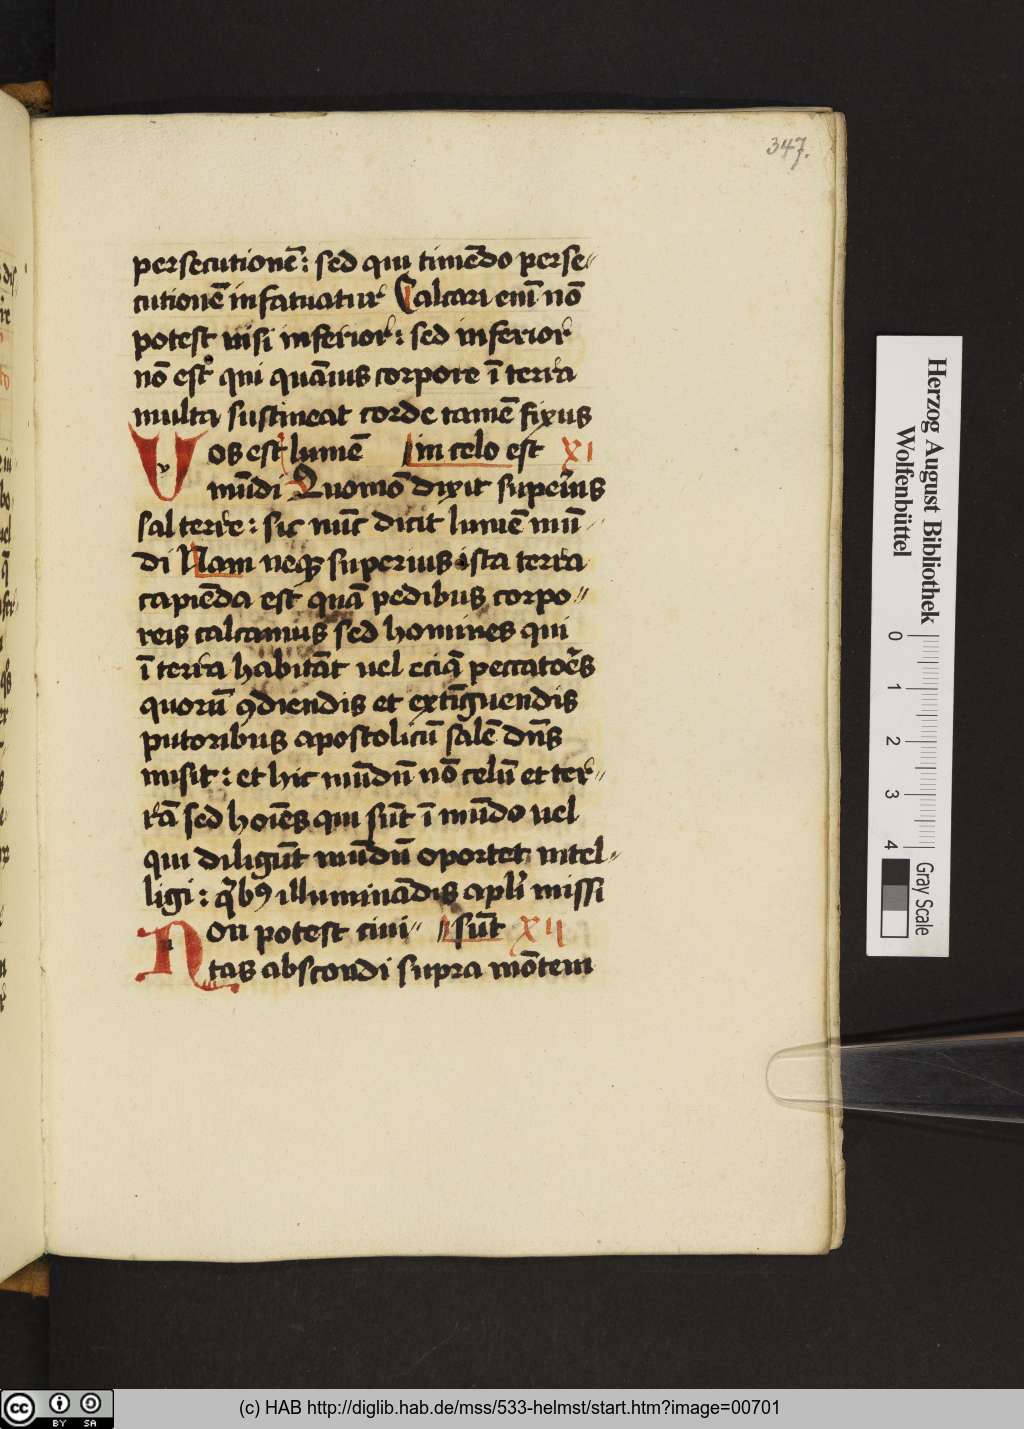 347.
persecutionē: sed qui timēdo perse〃
cutionē infatuatur Calcari enī nō
potest nisi inferior: sed inferior
nō est qui quāuis corpore ī terra
multa sustineat corde tamē fixus
Vos estꝭ lumē in celo est XI
mūdi Quomō dixit superius
sal terre: sic nūc dicit lumē mū〃
di Nam neqꝫ superius ista terra
capiēda est quā pedibus corpo〃
reis calcamus sed homines qui
ī terra habitāt uel eciā peccatoēs
quorū ꝯdiendis et extīguendis
putoribus apostolicū salē dn̄s
misit: et hic mūdū nō celū et ter〃
rā sed hoīes qui sūt ī mūdo uel
qui diligūt mūdū oportet intel〃
ligi: qͥbꝰ illuminādis apl̄i missi
Non potest ciui〃 sūt XII
tas abscondi supra mōtem
Herzog August Bibliothek
Wolfenbüttel
0 1 2 3 4
Gray Scale
cc BY SA
(c) HAB http://diglib.hab.de/mss/533-helmst/start.htm?image=00701